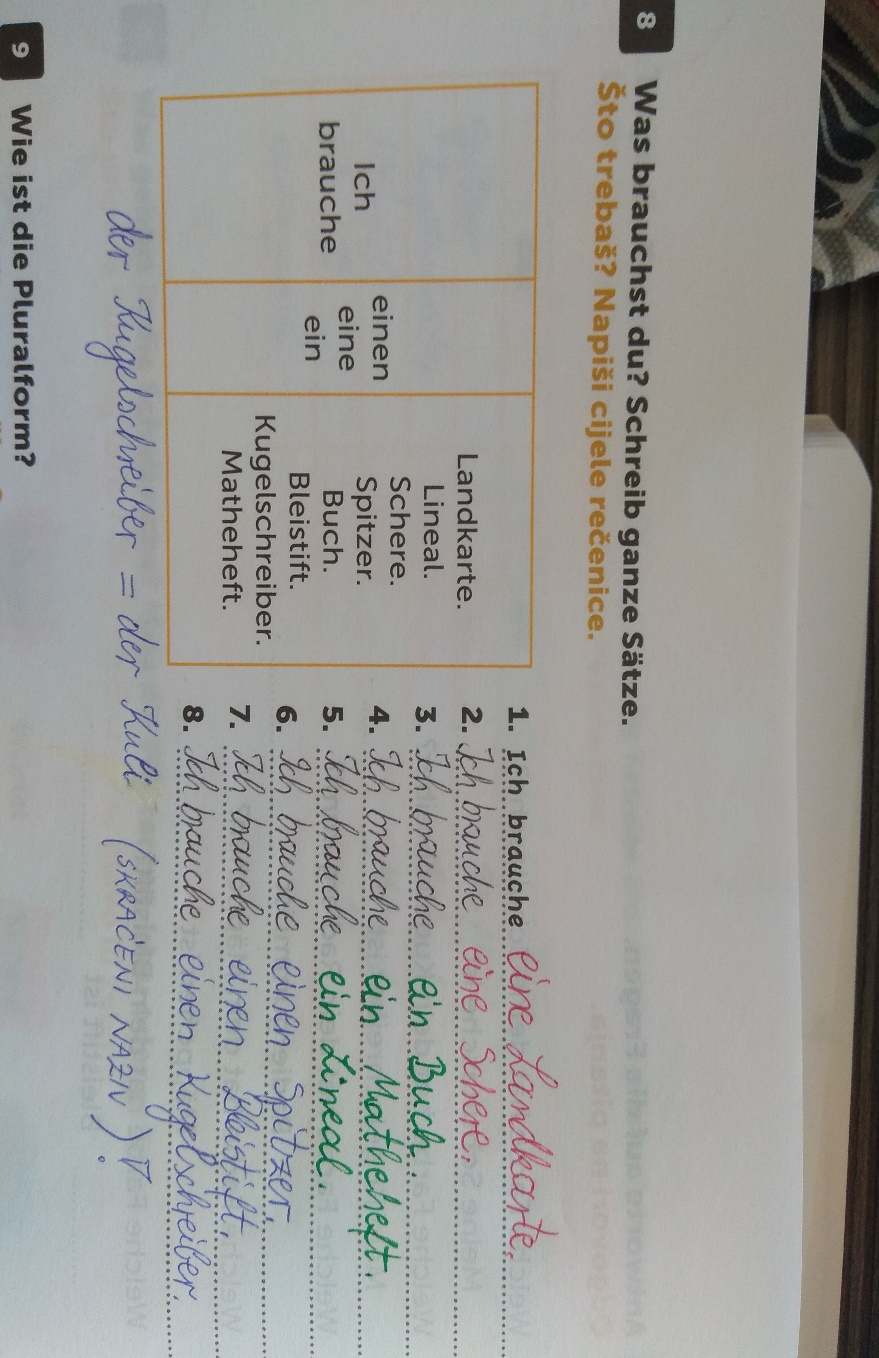 8 Was brauchst du? Schreib ganze Sätze.
Što trebaš? Napiši cijele rečenice.
Ich
brauche
einen
eine
ein
Landkarte.
Lineal.
Schere.
Spitzer.
Buch.
Bleistift.
Kugelschreiber.
Matheheft.
1. Ich brauche eine Landkarte.
2. Ich brauche eine Schere.
3. Ich brauche ein Buch.
4. Ich brauche ein Matheheft.
5. Ich brauche ein Lineal.
6. Ich brauche einen Spitzer.
7. Ich brauche einen Bleistift.
8. Ich brauche einen Kugelschreiber.
der Kugelschreiber = der Kuli (SKRAĆENI NAZIV)!
9 Wie ist die Pluralform?